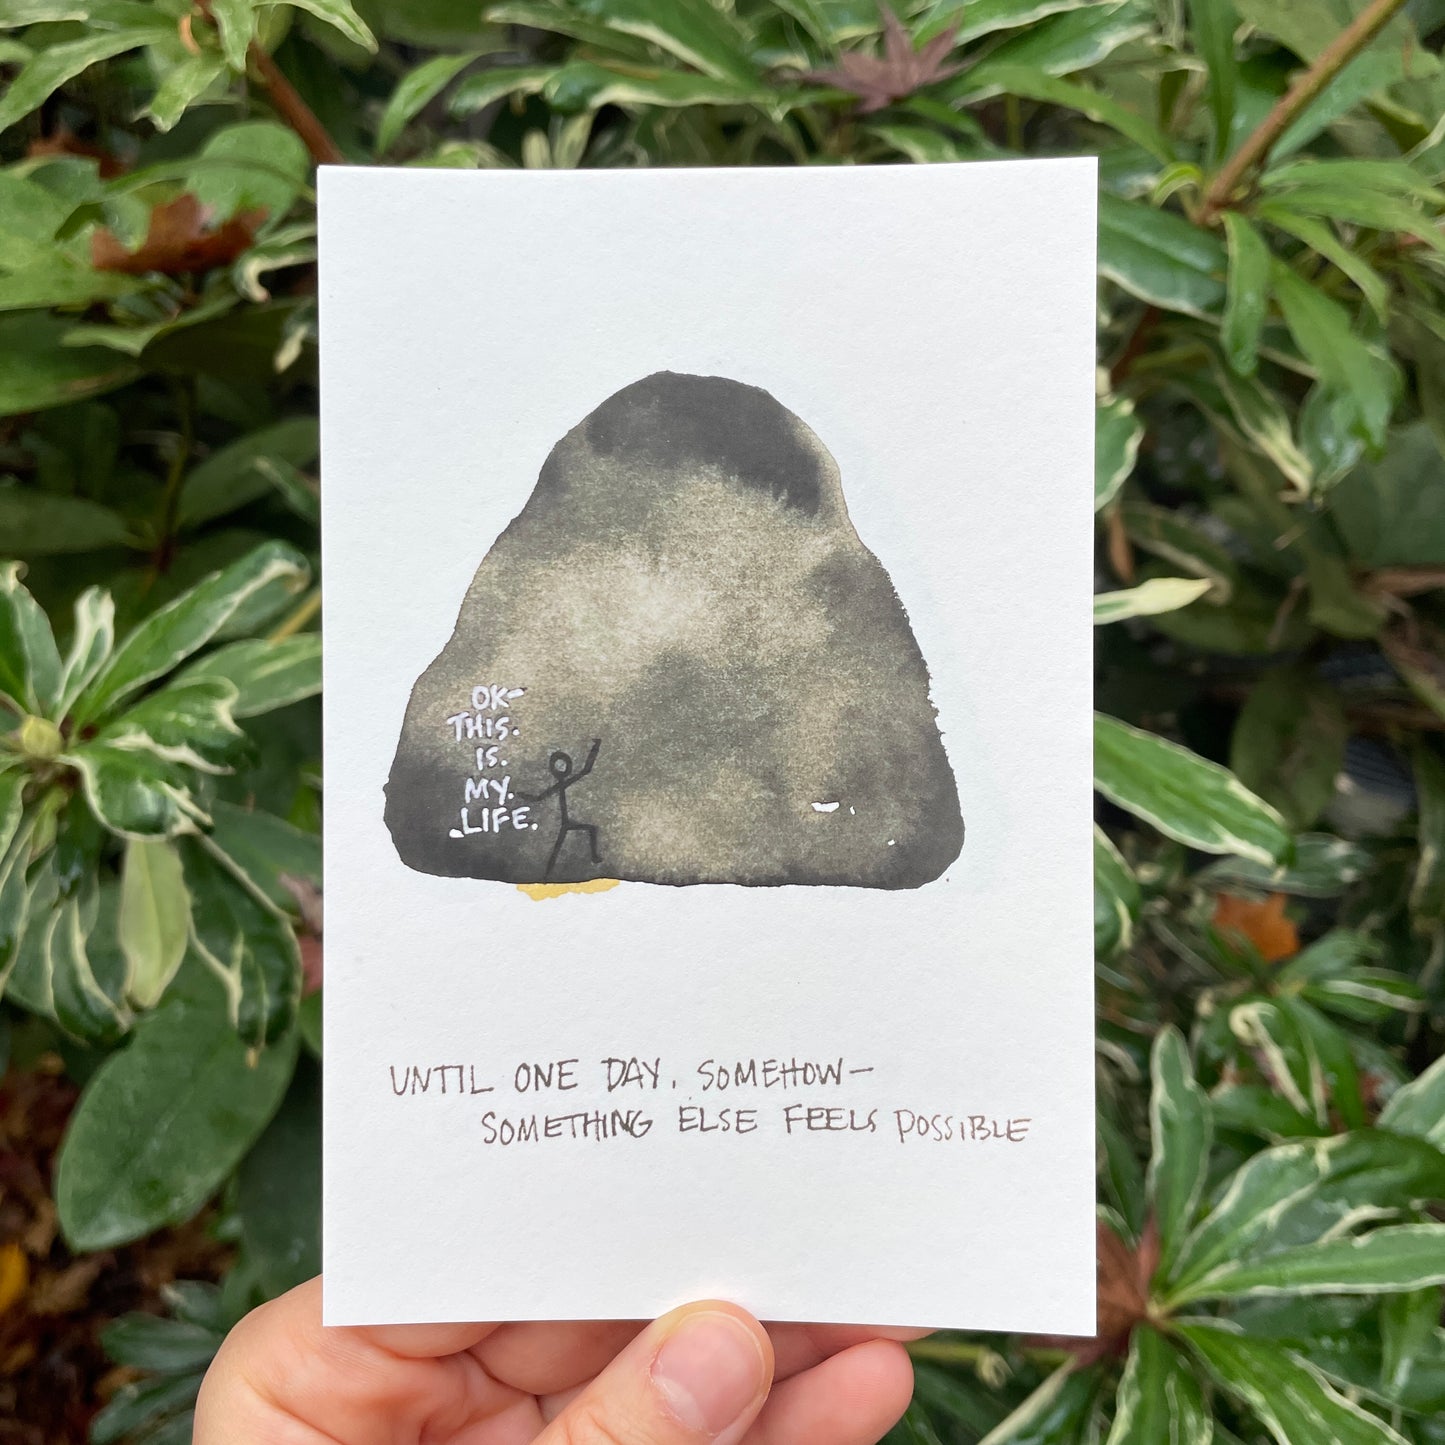 OK-
THIS.
IS.
MY.
LIFE.
UNTIL ONE DAY, SOMEHOW—
SOMETHING ELSE FEELS POSSIBLE